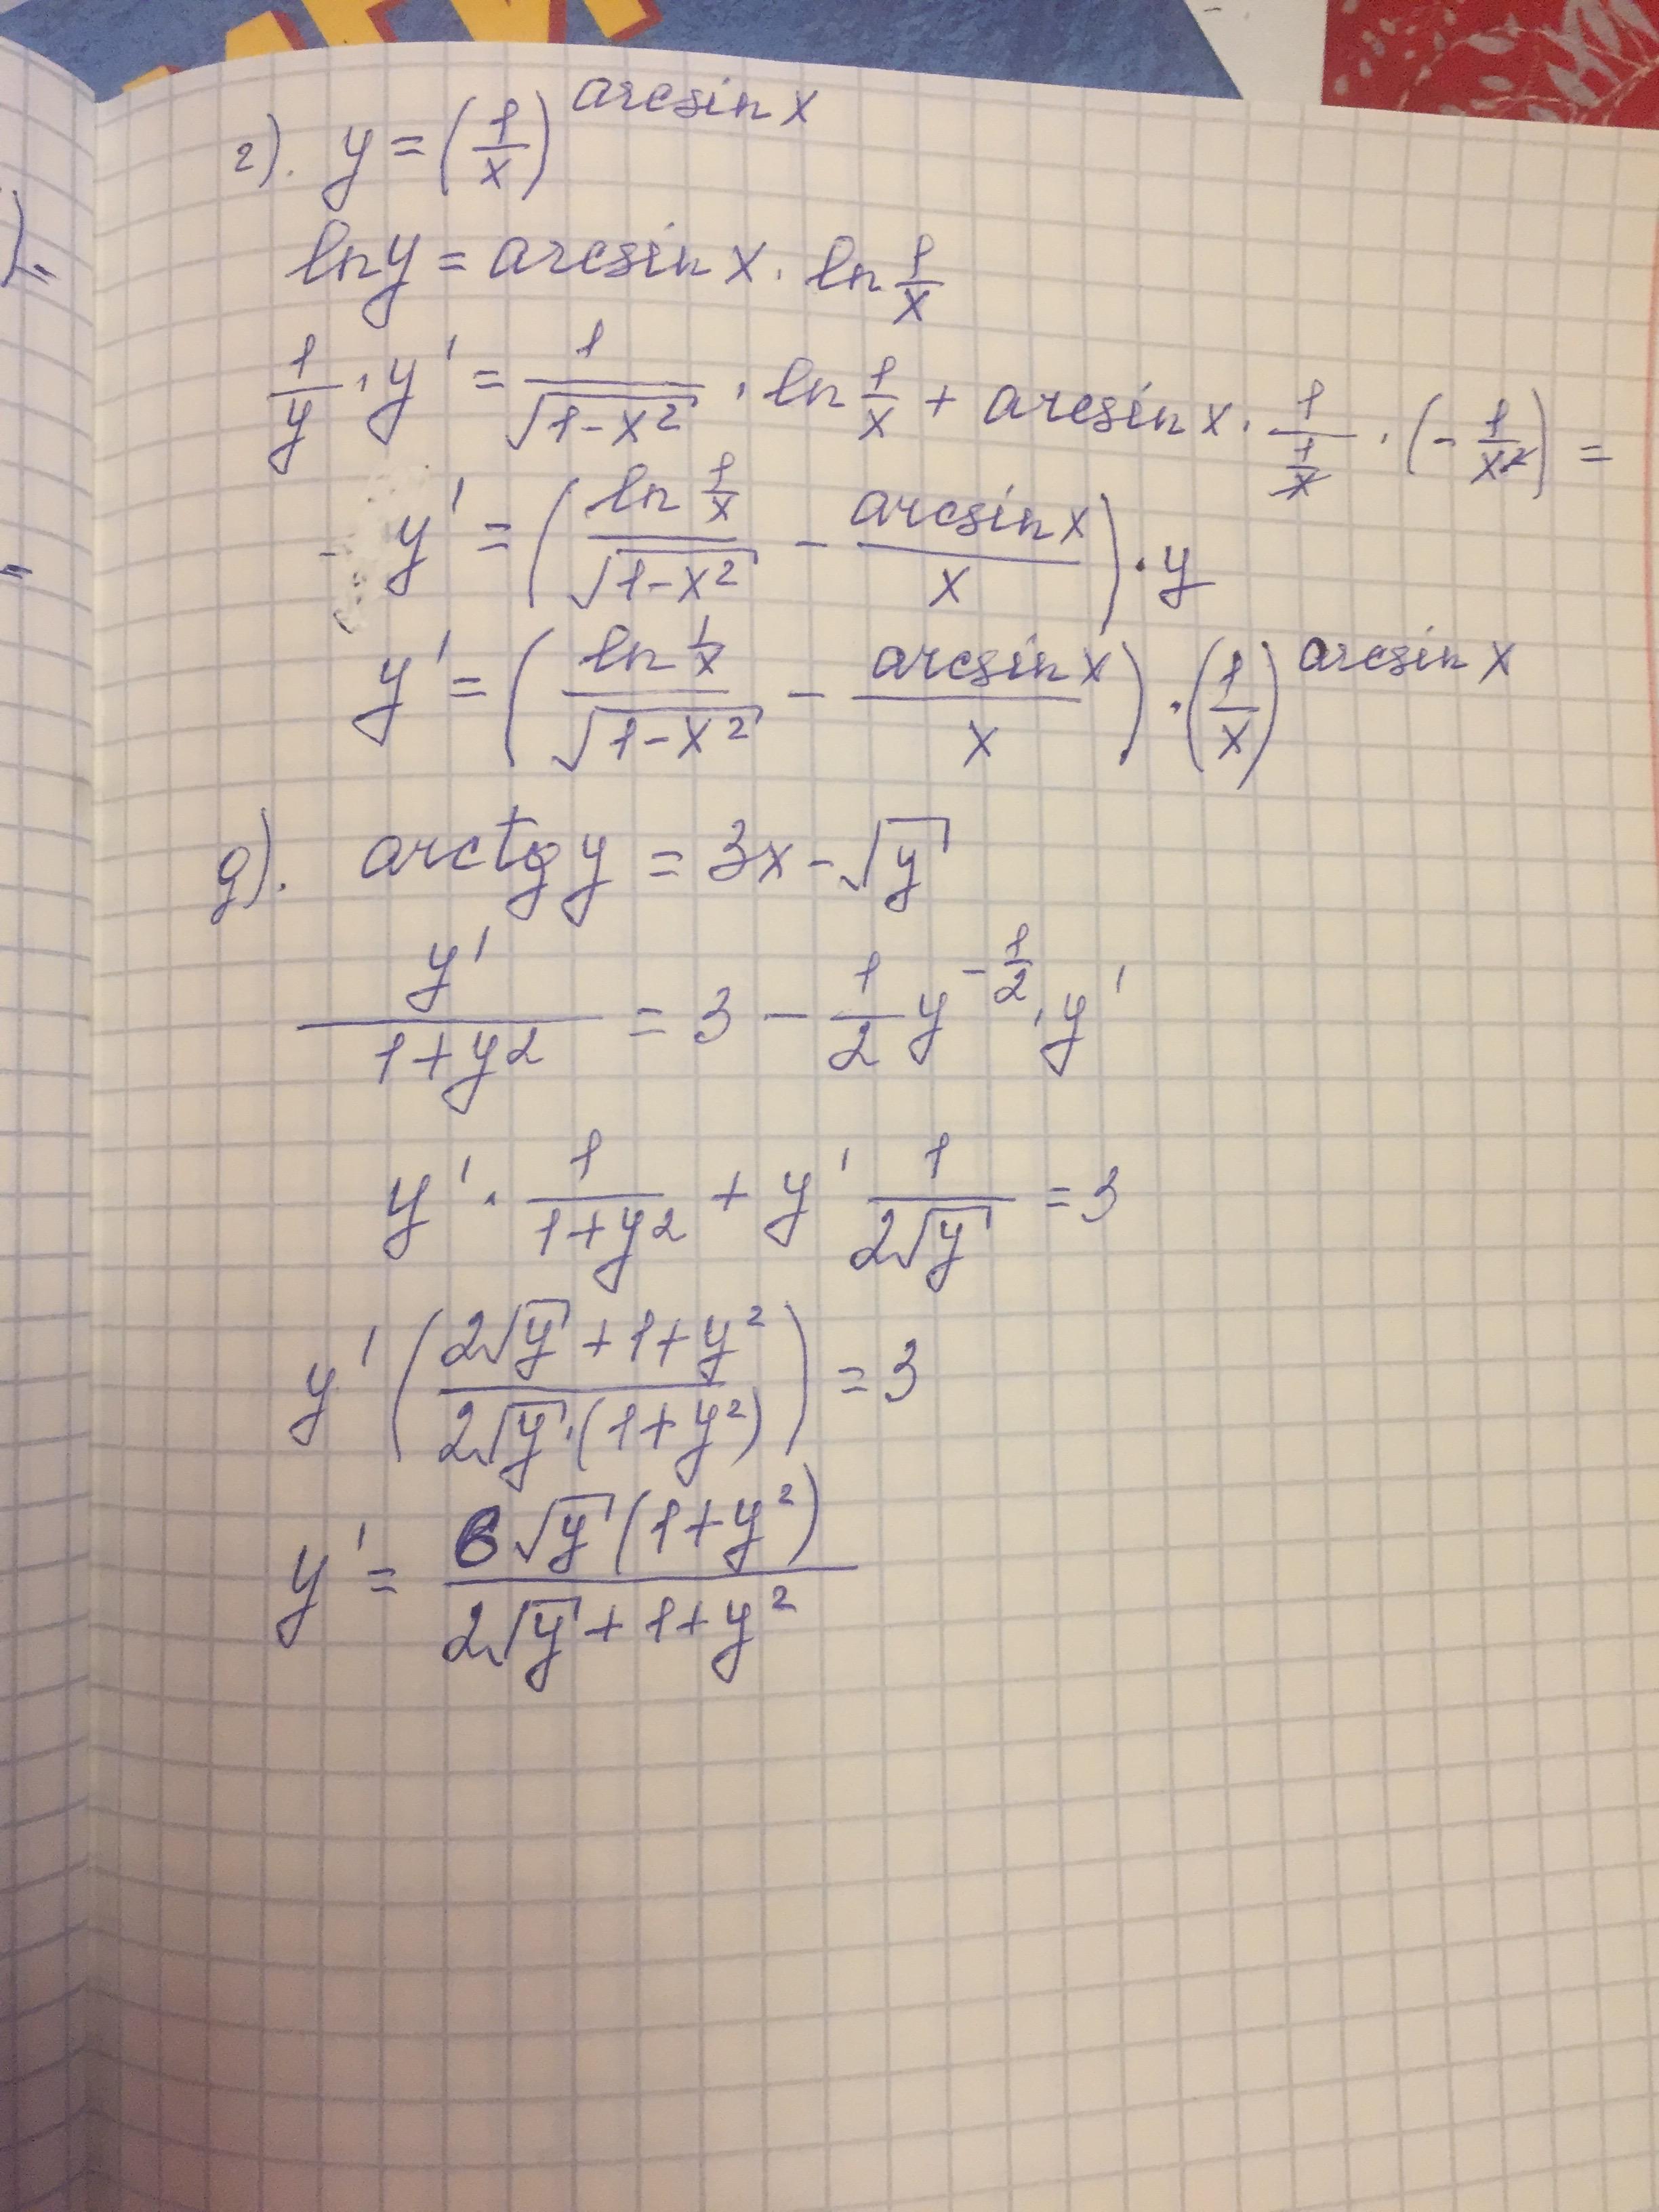 г). y = (1/x)^arcsin x
ln y = arcsin x · ln 1/x
1/y · y' = 1/√(1-x²) · ln 1/x + arcsin x · 1/(1/x) · (- 1/x²) =
y' = (ln 1/x / √(1-x²) - arcsin x / x) · y
y' = (ln 1/x / √(1-x²) - arcsin x / x) · (1/x)^arcsin x
g). arctg y = 3x - √y
y' / (1+y²) = 3 - 1/2 y^(-1/2) · y'
y' · 1/(1+y²) + y' 1/(2√y) = 3
y' ((2√y + 1 + y²) / (2√y · (1+y²))) = 3
y' = 6√y (1+y²) / (2√y + 1 + y²)